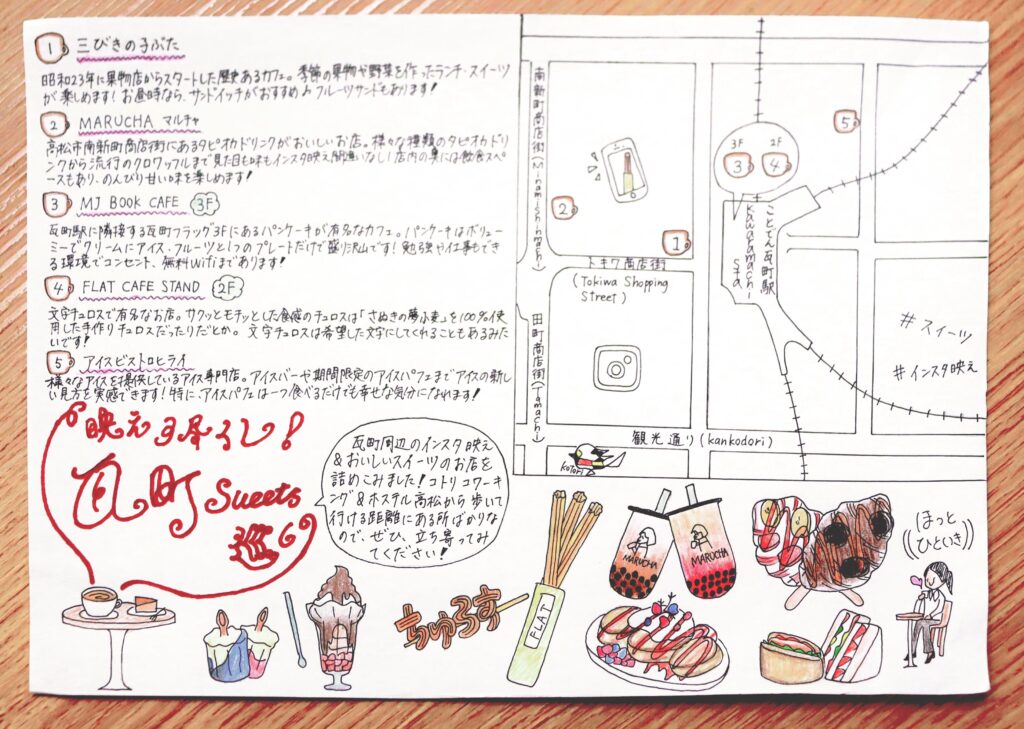 1 三びきの子ぶた
昭和23年に果物店からスタートした歴史あるカフェ。季節の果物や野菜を作ったランチ・スイーツ
が楽しめます! お昼時なら、サンドイッチがおすすめ♪フルーツサンドもあります!
2 MARUCHA マルチャ
高松市南新町商店街にあるタピオカドリンクがおいしいお店。様々な種類のタピオカドリ
ンクから流行のクロワッフルまで見た目も味もインスタ映え間違いなし!店内の奥には飲食スペ
ースもあり、のんびり甘い味を楽しめます!
3 MJ BOOK CAFE 3F
瓦町駅に隣接する瓦町フラッグ3Fにあるパンケーキが有名なカフェ。パンケーキはボリュー
ミーでクリームにアイス、フルーツと1つのプレートだけで盛り沢山です! 勉強や仕事もでき
る環境でコンセント、無料Wifiまであります!
4 FLAT CAFE STAND 2F
文字チュロスで有名なお店。サクッともチッとした食感のチュロスは「さぬきの夢小麦」を100%使
用した手作りチュロスだったりだとか。 文字チュロスは希望した文字にしてくれることもあるみた
いです!
5 アイスビストロヒライ
様々なアイスを提供しているアイス専門店。アイスバーや期間限定のアイスパフェまでアイスの新し
い見方を実感できます!特に、アイスパフェは一つ食べるだけでも幸せな気分になれます!
映え写尽くし!
瓦町 Sweets
巡
瓦町周辺のインスタ映え
&おいしいスイーツのお店を
詰めこみました! コトリコワーキ
ング&ホステル高松から歩いて
行ける距離にある所ばかりな
ので、ぜひ、立ち寄ってみ
てください!
南新町商店街(Minamishinmachi)
3F
3
2F
4
5
2
1
ことでん瓦町駅
Kawaramachi Sta
トキワ商店街
(Tokiwa Shopping
Street)
田町商店街(Tamachi)
#スイーツ
#インスタ映え
観光通り(kankodori)
kotori
ちゅろす
FLAT
MARUCHA
MARUCHA
ほっと
ひといき